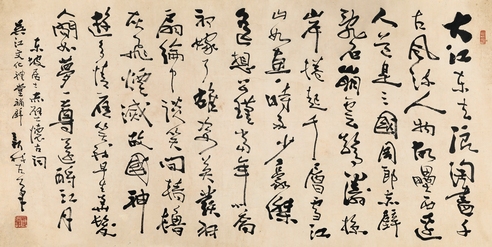 大江东去浪淘盡千
古风流人物故壘西邊
人道是三國周郎赤壁
乱石崩雲驚濤掠
岸捲起千層雪江
山如畫一時多少豪傑
遥想公瑾當年小喬
初嫁了雄姿英發羽
扇綸巾談笑間檣櫓
灰飛煙滅故國神
遊多情應笑我早生華髮
人間如夢一尊還酹江月
东坡居士赤壁懷古词
吴江文化禮堂補壁